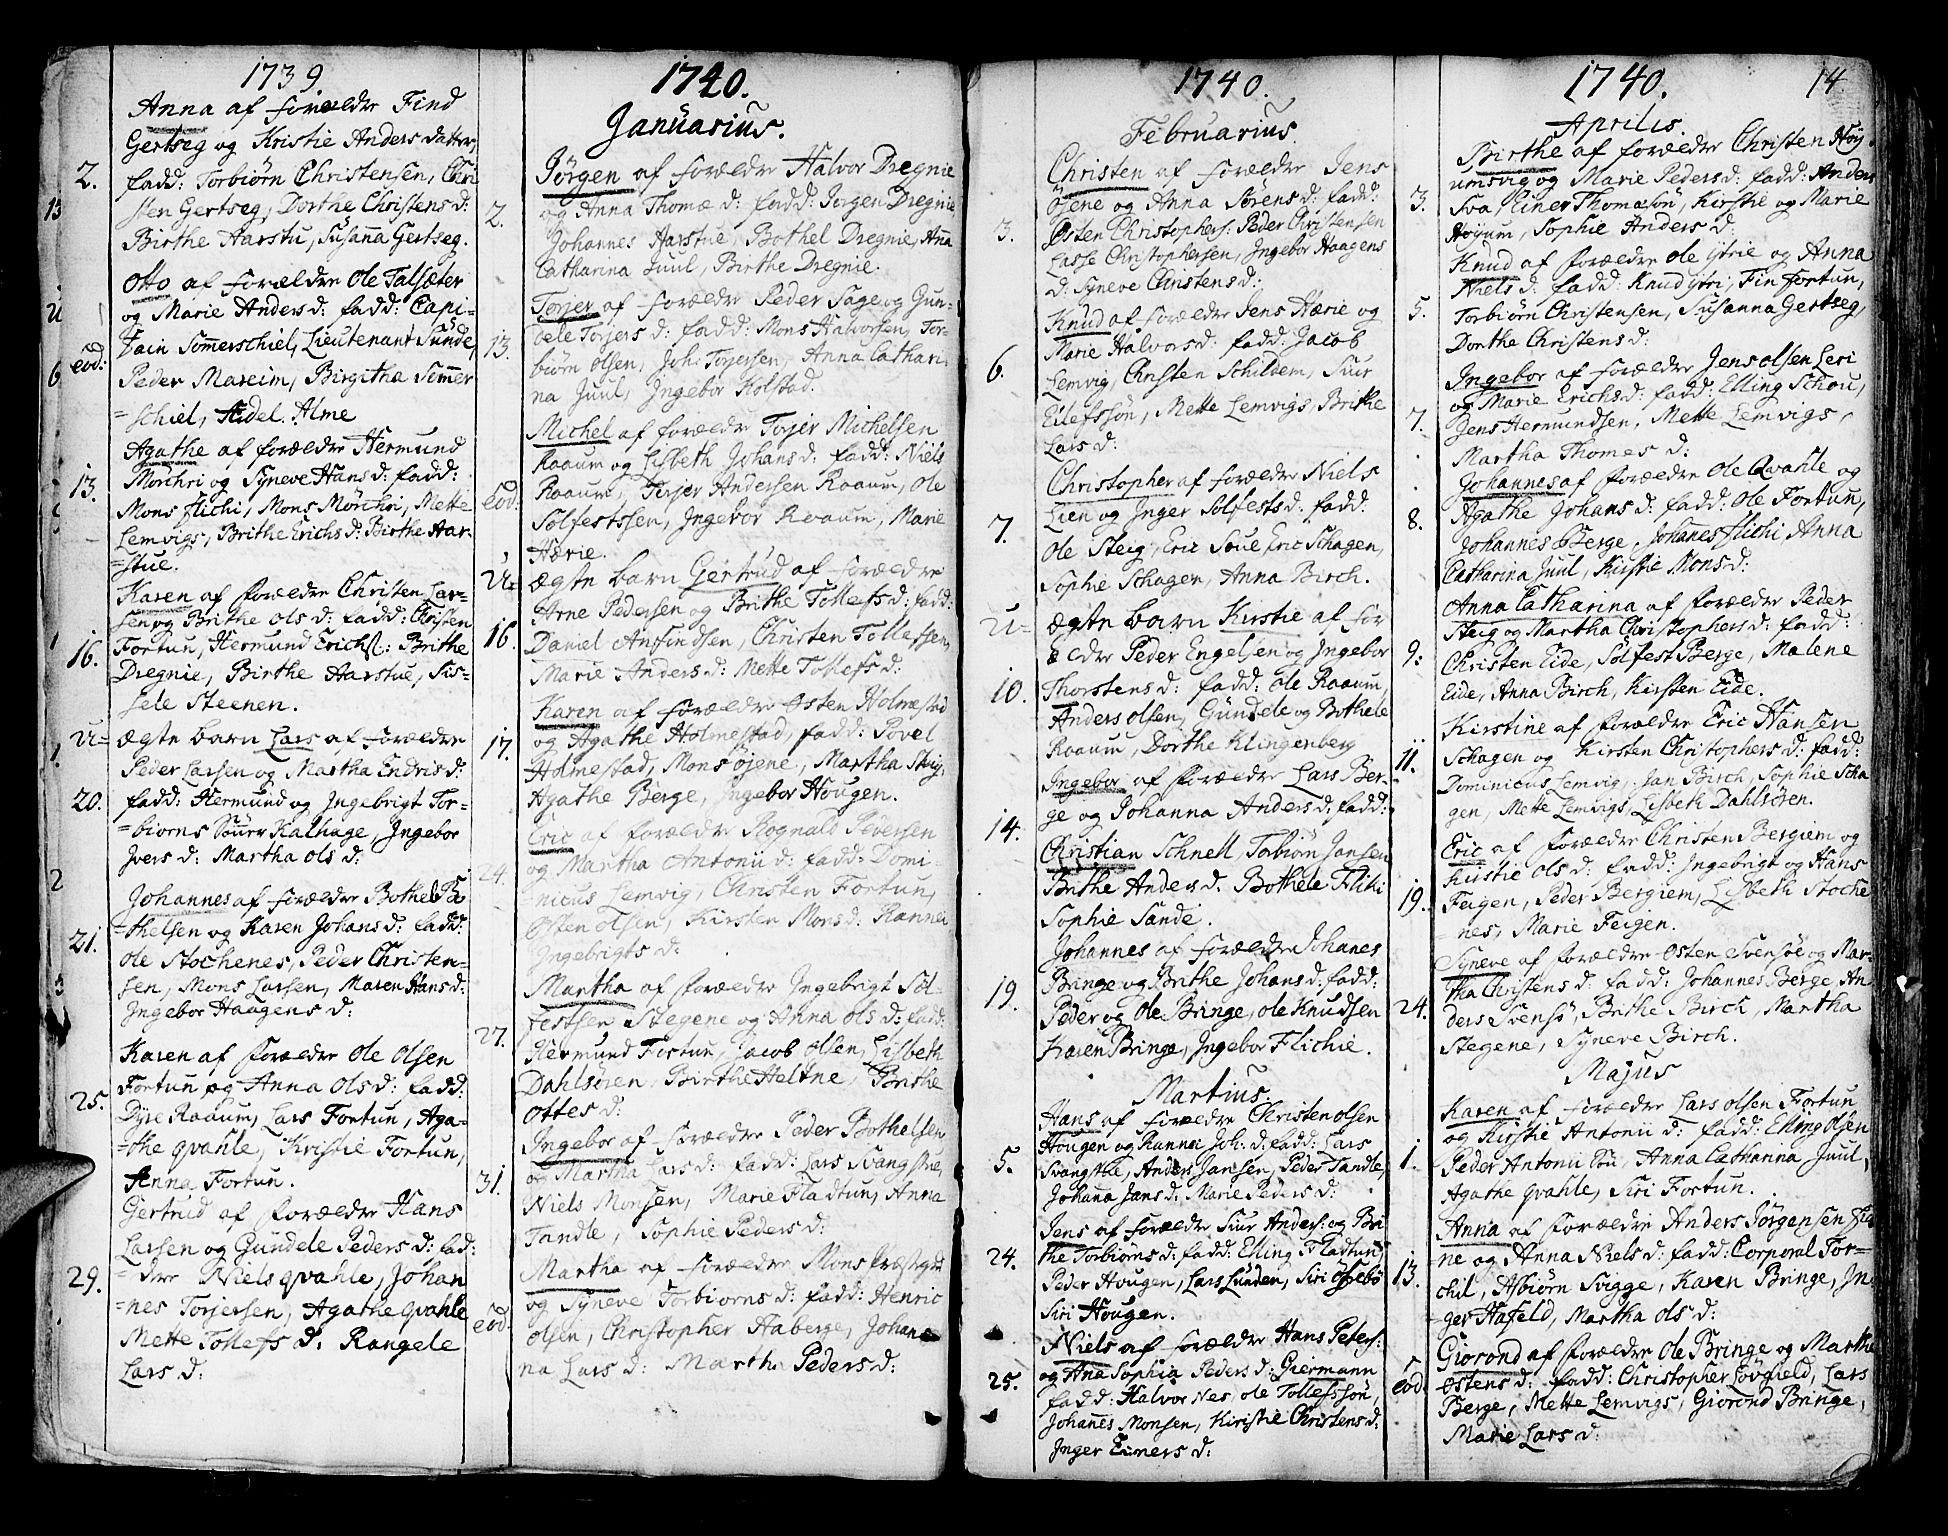 1739.
Anna af forældre Find
Gertseg og Kristie Anders datter,
2. fadd: Torbiørn Christensen, Chri
sten Gertseg, Dorthe Christens d:
Birthe Aarstu, Susanna Gertseg.
Otto af forældre Ole Talsæter
og Marie Anders d: fadd: Capi-
eod: tain Sommerschiel, Lieutenant Sunde,
Peder Mareim, Birgitha Sommer
=schiel, Aidel Alme
Agathe af forældre Hermund
13. Mörchri og Syneve Hans d: fadd:
Mons flichi, Mons Mörchri, Mette
Lemvigs, Brithe Erichs d: Birthe Aar
=stue.
Karen af forældre Christen Lar-
sen og Brithe Ols d: fadd: Christen
16. Fortun, Hermund Erichs: Brithe
Dregnie, Birthe Aarstue, Sis-
sele Steenen.
U= ægte barn Lars af forældre
Peder Larsen og Martha Endris d:
20. fadd: Hermund og Ingebrigt Tor-
=biorns Sönner Kalhage, Ingebor
Ivers d: Martha Ols d:
Johannes af forældre Bothel Bo
21. =thelsen og Karen Johans d: fadd:
Ole Stochenes, Peder Christen-
sen, Mons Larsen, Maren Hans d:
Ingebor Haagens d:
Karen af forældre Ole Olsen
25. Fortun og Anna Ols d: fadd:
Dyre Raaum, Lars Fortun, Aga-
=the qvahle, Kristie Fortun,
Anna Fortun.
Gertrud af forældre Hans
Larsen og Gundele Peders d: fad:
29. =der Niels qvahle, Johan
=nes Torjersen, Agathe qvahle
Mette Tollefs d: Rangele
Lars d:
1740.
Januarius.
Jørgen af forældre Halvor Dregnie
2. og Anna Thomæ d: fadd: Jørgen Dregnie
Johannes Aarstue, Bothel Dregnie, Anna
Catharina Juul, Birthe Dregnie.
Torjer af forældre Peder Sage og Gun-
13. dele Torjers d: fadd: Mons Halvorsen, Tor-
biørn Olsen, Joh: Torjersen, Anna Cathari-
na Juul, Ingebor Kolstad.
Michel af forældre Torjer Michelsen
Raaum og Lisbeth Johans d: fadd: Niels
eod: Raaum, Torjer Andersen Raaum, Ole
Solfestssen, Ingebor Roaum, Marie
Hærie.
U= ægte barn Gertrud af forældre
Arne Pedersen og Brithe Tollefs d: fadd:
16. Daniel Anfindsen, Christen Tollefsen,
Marie Anders d: Mette Tollefs d:
Karen af forældre Osten Holmestad
17. og Agathe Holmestad, fadd: Povel
Holmestad, Mons øjene, Martha Steig,
Agathe Berge, Ingebor Hougen.
Eric af forældre Rognald Peversen
24. og Martha Antonii d: fadd: Domi
=nicus Lemvig, Christen Fortun,
Osten Olsen, Kirsten Mons d: Rannei
Ingebrigts d:
Martha af forældre Ingebrigt Sol-
27. festsen Stegene og Anna Ols d: fadd:
Hermund Fortun, Jacob Olsen, Lisbeth
Dahlsören, Birthe Heltne, Brithe
Ottes d:
Ingebor af forældre Peder Bothelsen
31. og Martha Lars d: fadd: Lars Svangstue,
Niels Monsen, Marie Fladtun, Anna
Tandle, Sophie Peders d:
Martha af forældre Mons
eod: og Syneve Torbiorns d: fadd: Henric
Olsen, Christopher Aaberge, Johan-
na Lars d: Martha Peders d:
1740.
Februarius.
Christen af forældre Jens
Öjene og Anna Sörens d: fadd:
3. Osten Christophers: Peder Christensen
Lasse Christophersen, Ingebor Haagens
d: Syneve Christens d:
Knud af forældre Jens Hærie og
Marie Halvors d: fadd: Jacob
6. Lemvig, Christen Schildem, Siur
Eilefssön, Mette Lemvigs, Brithe
Lars d:
Christopher af forældre Niels
7. Lien og Inger Solfests d: fadd:
Ole Steig, Eric Soue, Eric Schagen,
Sophie Schagen, Anna Birch.
U= ægte barn Kirstie af for
ældre Peder Engelsen og Ingebor
10. Thorstens d: fadd: Ole Raaum,
Anders Olsen, Gundele og Bothele
Raaum, Dorthe Klingenberg
Ingebor af forældre Lars Ber-
14. ge og Johanna Anders d: fadd:
Christian Schnell, Torbiörn Jansen
Brithe Anders d. Bothele Flihi
Sophie Sande.
Johannes af forældre Johanes
19. Bringe og Brithe Johans d: fadd:
Peder og Ole Bringe, Ole Knudsen
Karen Bringe, Ingebor Flichie.
Martius.
Hans af forældre Christen Olsen
Hougen og Rannei Joh: d: fadd: Lars
5. Svangthe, Anders Jansen, Peder Tandle,
Johana Jans d: Marie Peders d:
Jens af forældre Siur Anders: og Bri
24. the Torbiørns d: fadd: Elling Fladtun
Peder Hougen, Lars Lunden, Siri Ossebö
Siri Hougen.
Niels af forældre Hans Peters:
25. og Ana Sophia Peders d: Giermann
fadd: Halvor Nes, Ole Tollefssön,
Johanes Monsen, Kirstie Christens d:
Inger Eimers d:
1740. 14
Aprilis.
Birthe af forældre Christen Höy
umsvig og Marie Peders d: fadd: Anders
3. Sva, Einer Thomasön, Kirstie og Marie
Höyum, Sophie Anders d:
Knud af forældre Ole Ytrie og Anna
Niels d: fadd: Knud ytri, Fin Fortun,
5. Torbiörn Christensen, Susanna Gertseg,
Dorthe Christens d:
Ingebor af forældre Jens Olsen Seri
og Marie Erichs d: fadd: Elling Schou,
7. Jens Hermundsen, Mette Lemvigs,
Martha Thomes d:
Johannes af forældre Ole Qvahle og
8. Agathe Johans d: fadd: Ole Fortun,
Johannes Berge, Johanes flichi, Anna
Catharina Juul, Kirstie Mons d:
Anna Catharina af forældre Peder
Steig og Martha Christophers d: fadd:
9: Christen Eide, Solfest Berge, Malene
Eide, Anna Birch, Kirsten Eide.
Kirstine af forældre Eric Hansen
11. Schagen og Kirsten Christophers d: fadd:
Dominicus Lemvig, Jan Birch, Sophie Scha
gen, Mette Lemvigs, Lisbeth Dahlsören.
Eric af forældre Christen Bergiem og
Kirstie Ols d: fadd: Ingebrigt og Hans
19. Feigen, Peder Bergiem, Lisbeth Stoche
nes, Marie Feigen.
Syneve af forældre Osten Svensöe og Mar-
tha Christens d: fadd: Johannes Berge, An
24. ders Svensö, Brithe Birch, Martha
Stegene, Syneve Birch.
Majus
Karen af forældre Lars Olsen Fortun
og Kirstie Antonii d: fadd: Elling Olsen
1. Peder Antonii Sön, Anna Catharina Juul,
Agathe qvahle, Siri Fortun.
Anna af forældre Anders Jörgensen
ne og Anna Niels d: fadd: Corporal Tor-
13. chil, Asbiörn Svigge, Karen Bringe, In
ger Hafeld, Martha Ols d:
Giorond af forældre Ole Bringe og Marthe
eod: Ostens d: fadd: Christopher Lövfield, Lars
Berge, Mette Lemvigs, Giorond Bringe,
Marie Lars d: